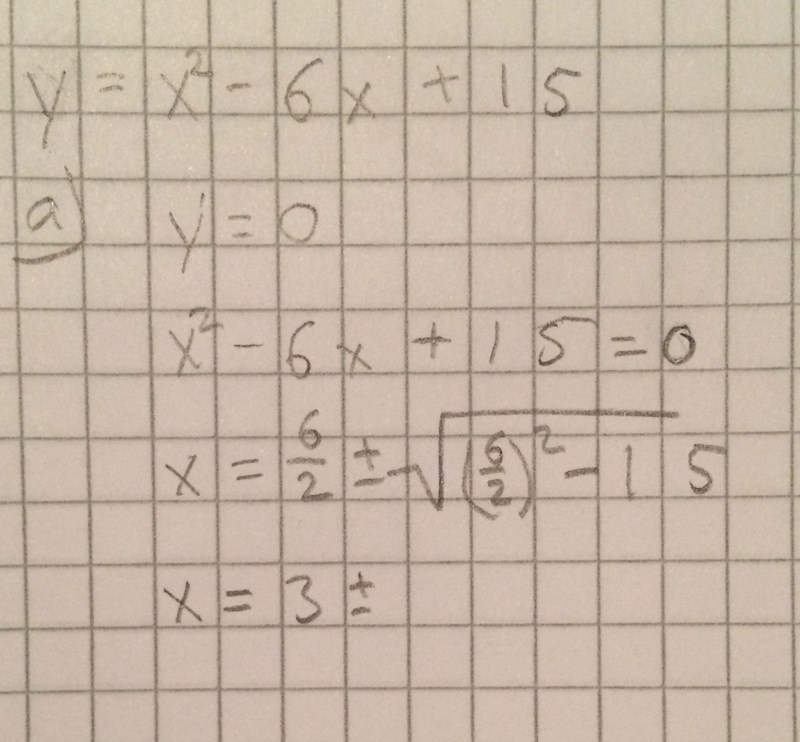 y = x² - 6x + 15
a) y = 0
x² - 6x + 15 = 0
x = 6/2 ± √((6/2)² - 15)
x = 3 ±